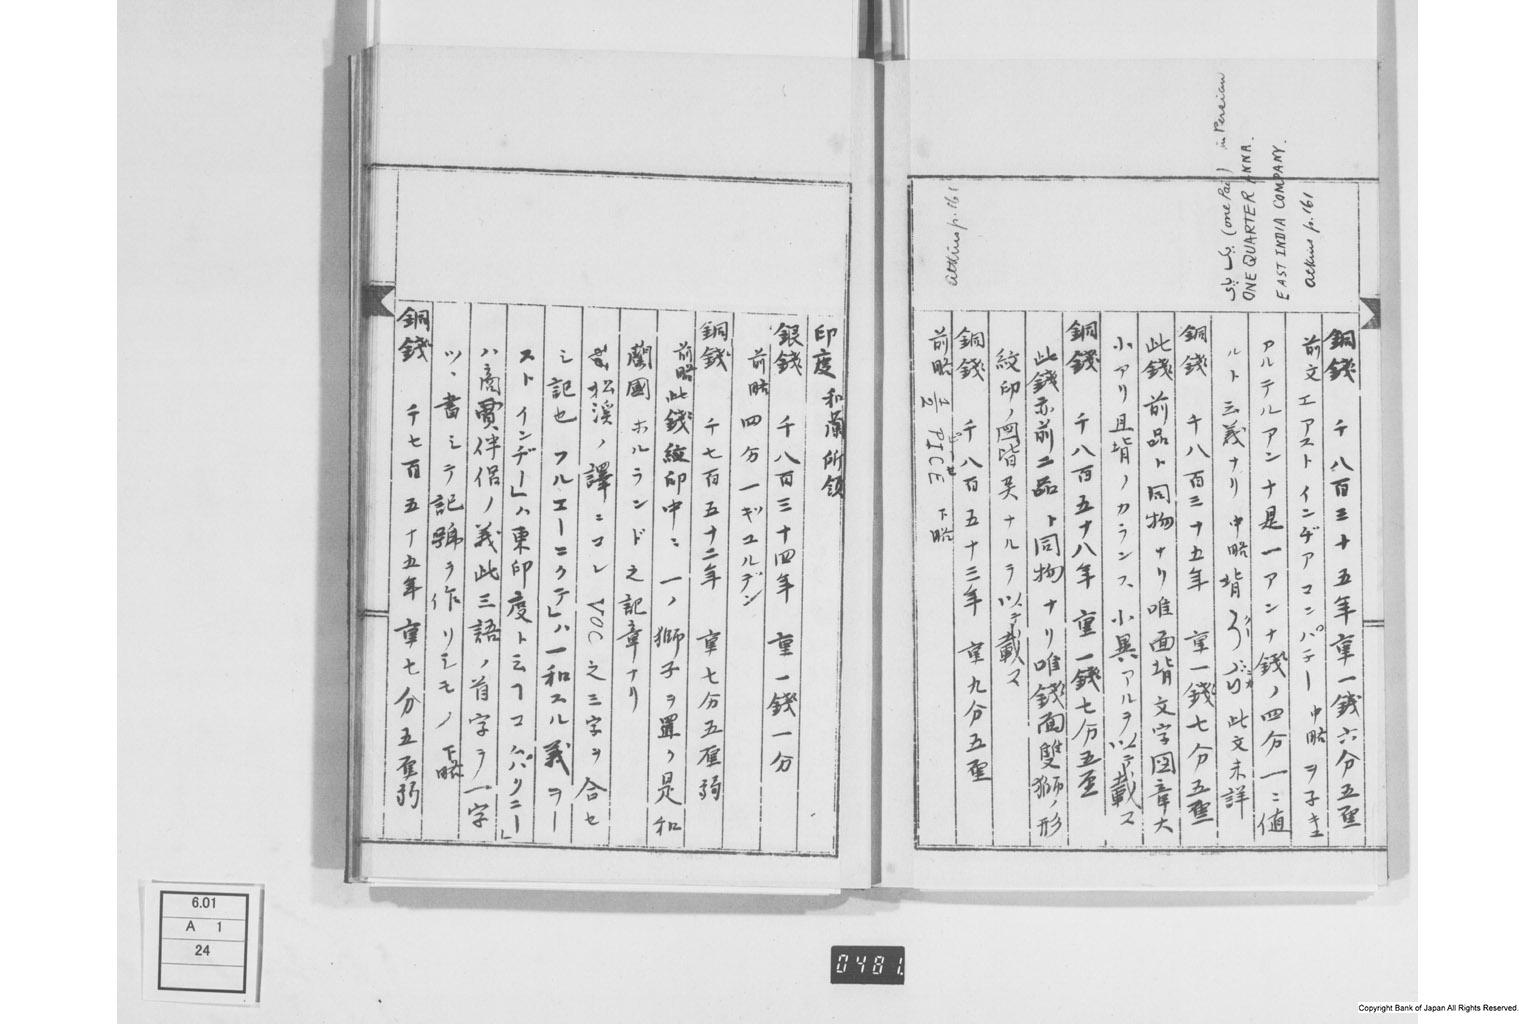 یک پای (one Pai) in Persian
ONE QUARTER ANNA.
EAST INDIA COMPANY.
Atkins p.161
銅錢 千八百三十五年 重一錢六分五厘
前文 エアスト インデア コンパニー 中略 ヲ子キ
アルテルアンナ是一アンナ錢ノ四分一ニ値
ルト云義ナリ 中略 背 此文未詳
銅錢 千八百三十五年 重一錢七分五厘
此錢前品ト同物ナリ唯面背文字図章大
小アリ且背ノカランス小異アルヲ以テ載ス
銅錢 千八百五十八年 重一錢七分五厘
此錢亦前二品ト同物ナリ唯錢面雙獅ノ形
紋印ノ図皆異ナルヲ以テ載ス
Atkins p.161
銅錢 千八百五十三年 重九分五厘
前略 1/2 PICE 下略
印度 和蘭所領
銀錢 千八百三十四年 重一錢一分
前略 四分一ギユルデン
銅錢 千七百五十二年 重七分五厘弱
前略此錢紋印中ニ一ノ獅子ヲ置ク是和
蘭國 ホルランド之記章ナリ
松溪ノ譯ニコレ VOC 之三字ヲ合セ
シ記也 フルエーニクデ」ハ一和スル義ヲー
スト インデー」ハ東印度ト云フコムパクニー」
ハ商賈伴侶ノ義此三語ノ首字ヲ一字
ツヽ書シテ記號ヲ作リシモノ 下略
銅錢 千七百五十五年 重七分五厘弱
6.01
A 1
24
0481.
Copyright Bank of Japan All Rights Reserved.